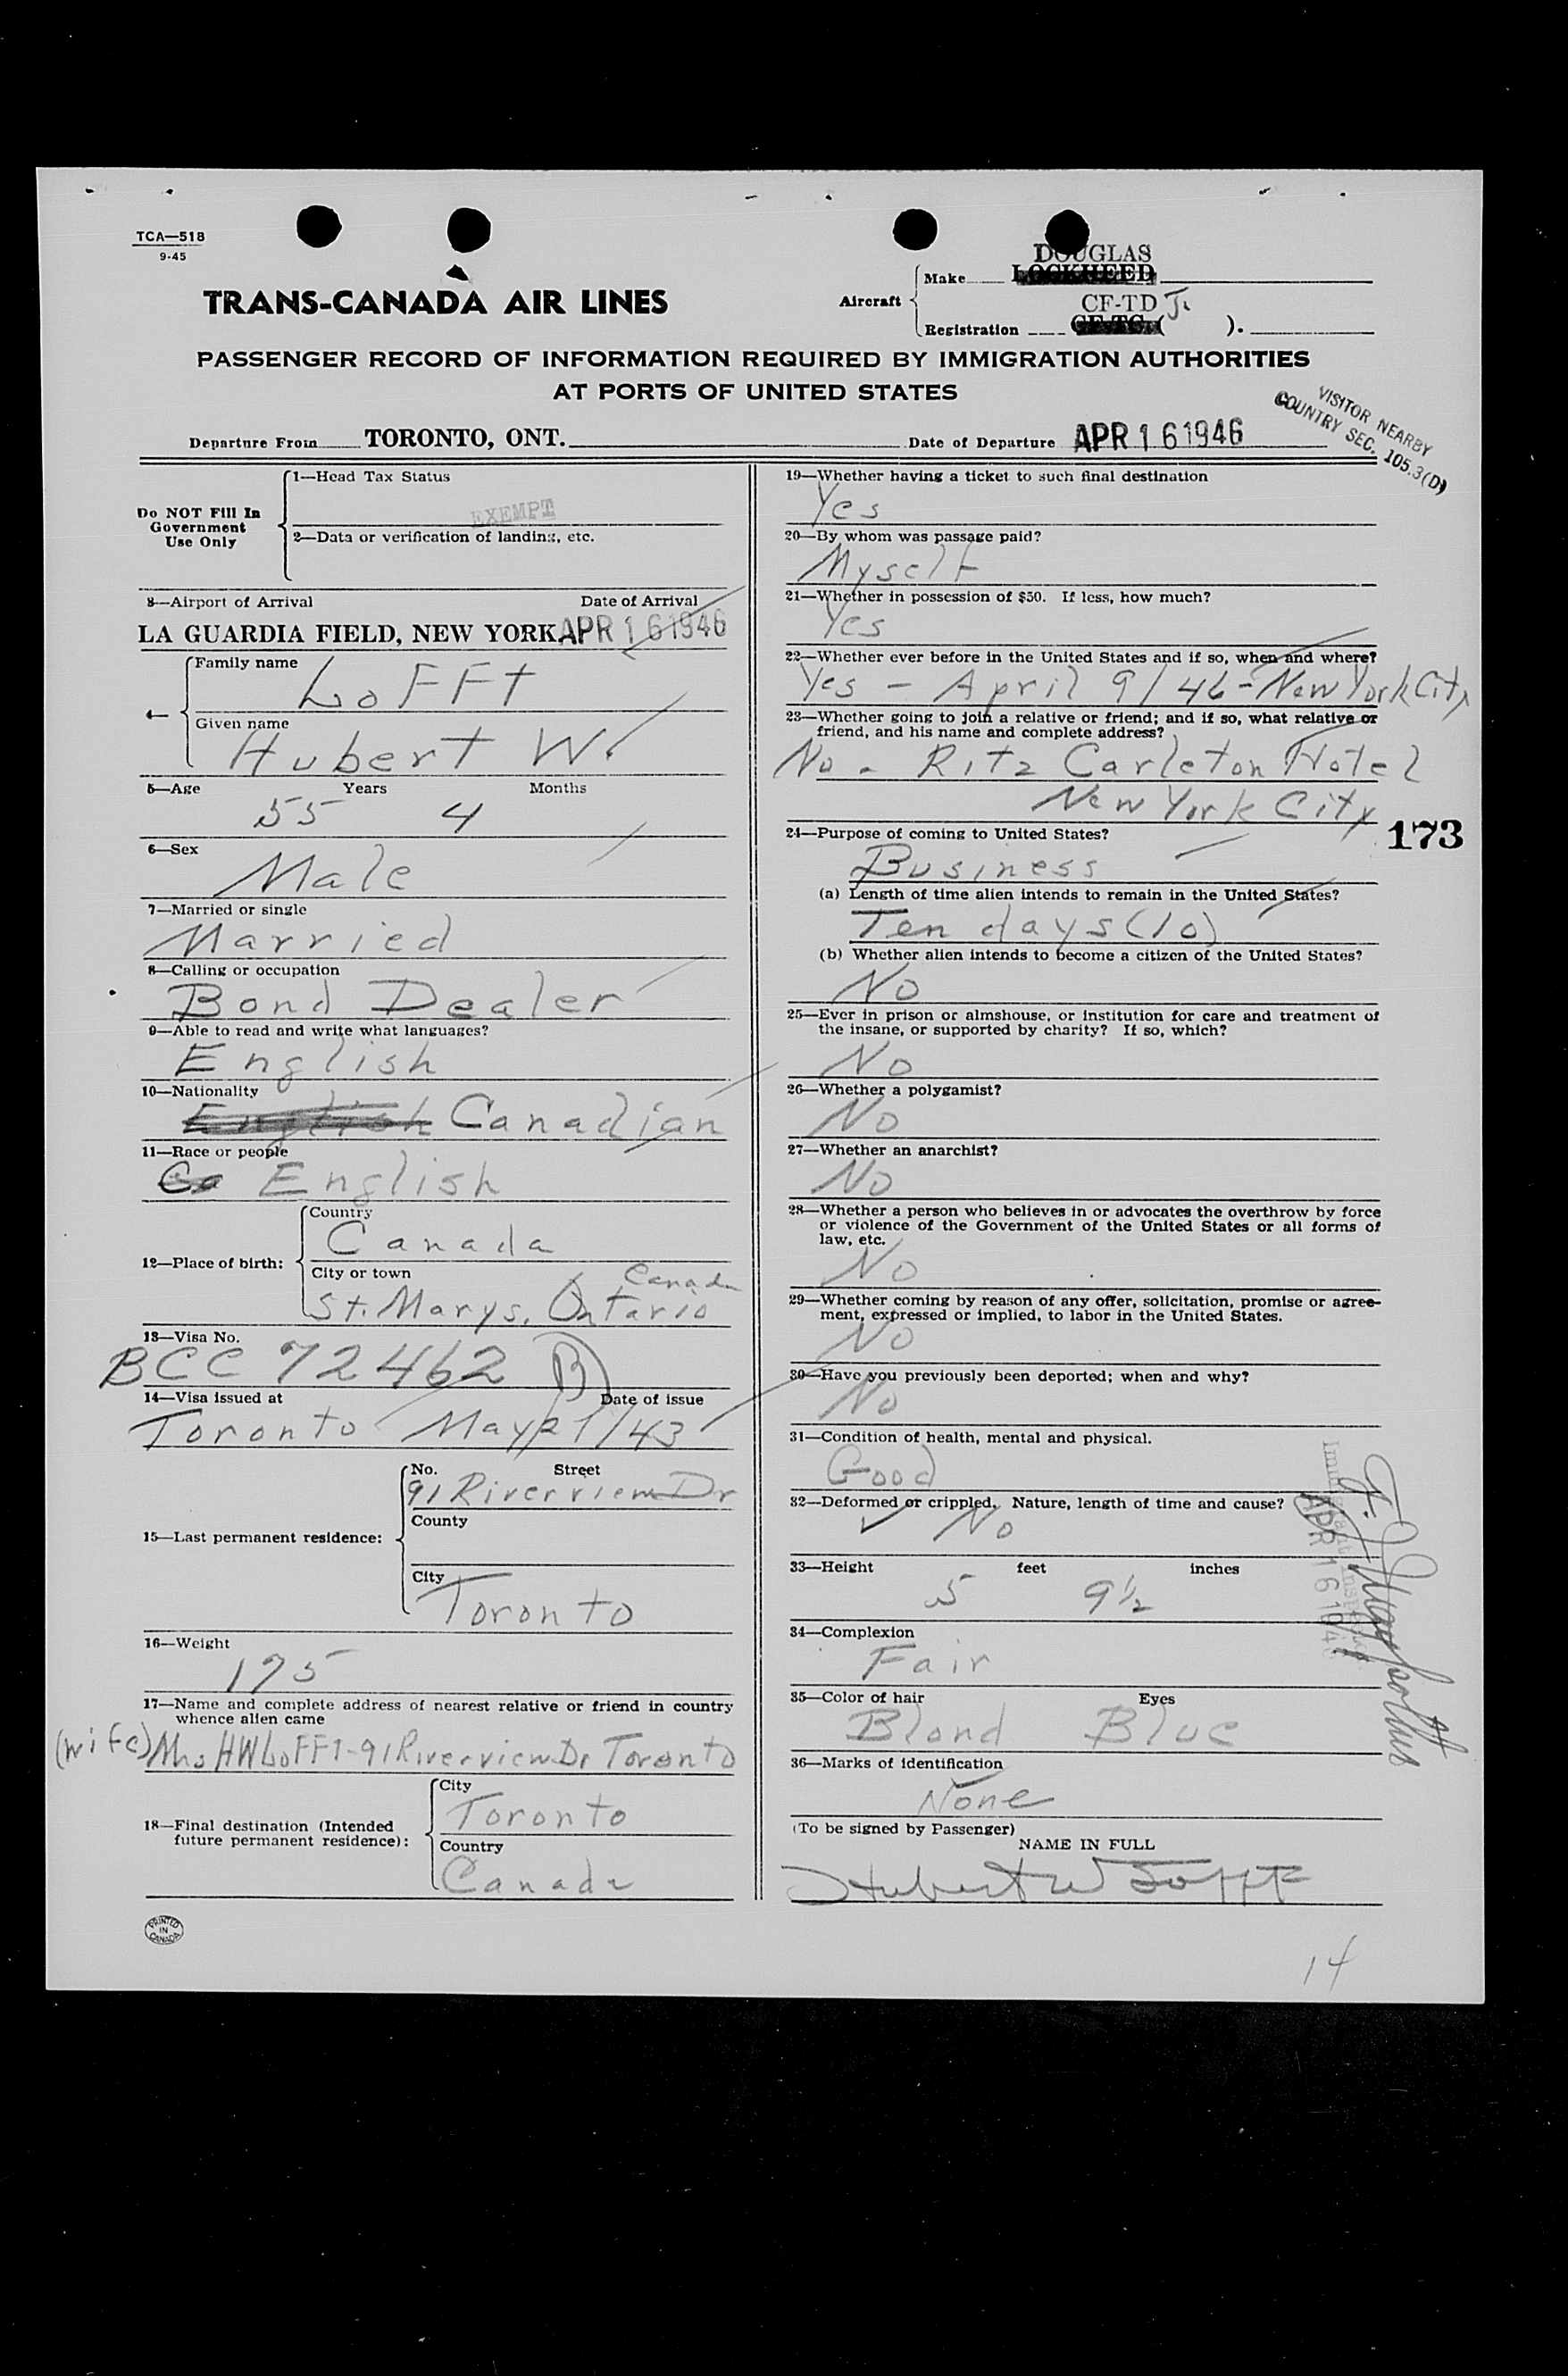 TCA—518
9-45
TRANS-CANADA AIR LINES
Aircraft
Make DOUGLAS
LOCKHEED
Registration CF-TD J.
CF-TC ( ).
PASSENGER RECORD OF INFORMATION REQUIRED BY IMMIGRATION AUTHORITIES
AT PORTS OF UNITED STATES
VISITOR NEARBY
COUNTRY SEC. 105.3(D)
Departure From TORONTO, ONT. Date of Departure APR 16 1946
Do NOT Fill In
Government
Use Only
1—Head Tax Status
EXEMPT
2—Data or verification of landing, etc.
3—Airport of Arrival Date of Arrival
LA GUARDIA FIELD, NEW YORK APR 16 1946
4—
Family name
LoFFt
Given name
Hubert W.
5—Age Years Months
55 4
6—Sex
Male
7—Married or single
Married
8—Calling or occupation
Bond Dealer
9—Able to read and write what languages?
English
10—Nationality
English Canadian
11—Race or people
Ca English
12—Place of birth:
Country
Canada
City or town
Canada
St. Marys, Ontario
13—Visa No.
BCC 72462 B
14—Visa issued at Date of issue
Toronto May 21/43
15—Last permanent residence:
No. Street
91 Riverview Dr
County
City
Toronto
16—Weight
175
17—Name and complete address of nearest relative or friend in country
whence alien came
(wife) Mrs HW LoFFT-91 Riverview Dr Toronto
18—Final destination (Intended
future permanent residence):
City
Toronto
Country
Canada
PRINTED
IN
CANADA
19—Whether having a ticket to such final destination
Yes
20—By whom was passage paid?
Myself
21—Whether in possession of $50. If less, how much?
Yes
22—Whether ever before in the United States and if so, when and where?
Yes - April 9/46 - New York City
23—Whether going to join a relative or friend; and if so, what relative or
friend, and his name and complete address?
No - Ritz Carleton Hotel
New York City
173
24—Purpose of coming to United States?
Business
(a) Length of time alien intends to remain in the United States?
Ten days (10)
(b) Whether alien intends to become a citizen of the United States?
No
25—Ever in prison or almshouse, or institution for care and treatment of
the insane, or supported by charity? If so, which?
No
26—Whether a polygamist?
No
27—Whether an anarchist?
No
28—Whether a person who believes in or advocates the overthrow by force
or violence of the Government of the United States or all forms of
law, etc.
No
29—Whether coming by reason of any offer, solicitation, promise or agree-
ment, expressed or implied, to labor in the United States.
No
30—Have you previously been deported; when and why?
No
31—Condition of health, mental and physical.
Good
32—Deformed or crippled. Nature, length of time and cause?
No
APR 16 194
33—Height feet inches
5 9½
34—Complexion
Fair
35—Color of hair Eyes
Blond Blue
36—Marks of identification
None
(To be signed by Passenger)
NAME IN FULL
Hubert W Lofft
14